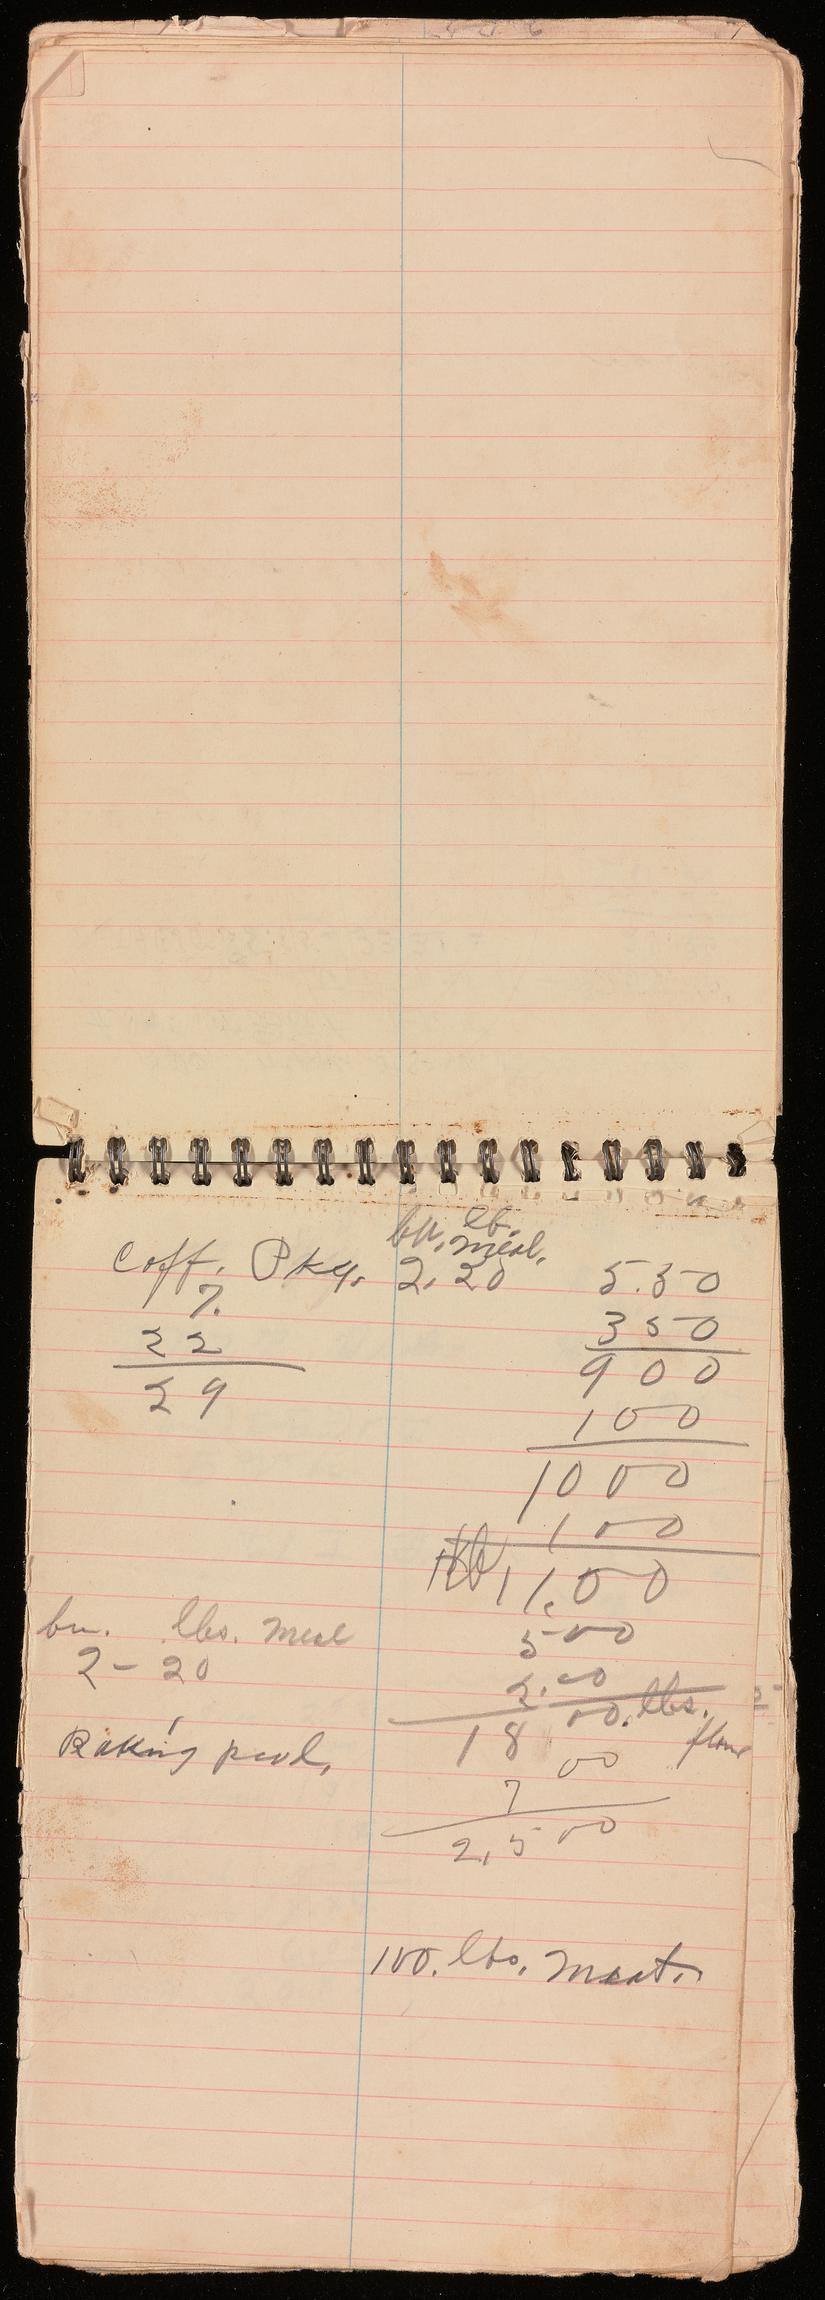 bu. lb.
meal.
Coff. Pkg. 2. 20 5.50
7. 350
22 900
29 100
1000
100
11.00
500
bu. lbs. meal
2 - 20 2.00
1800. lbs.
flour
Baking powd.
700
2,500
100. lbs. Meat.